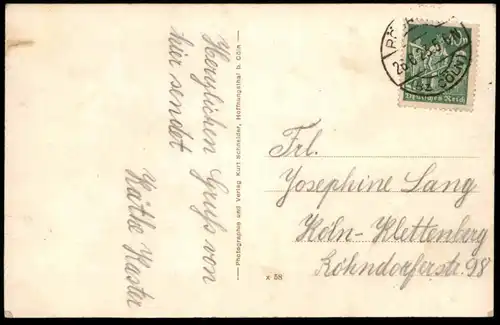 Herzlichen Gruß von
hier sendet
Käthe Kaster
Photographie und Verlag Kurt Schneider, Hoffnungsthal b. Cöln
Frl.
Josephine Lang
Köln-Klettenberg
Röhndorferstr 98
x 58
Deutsches Reich